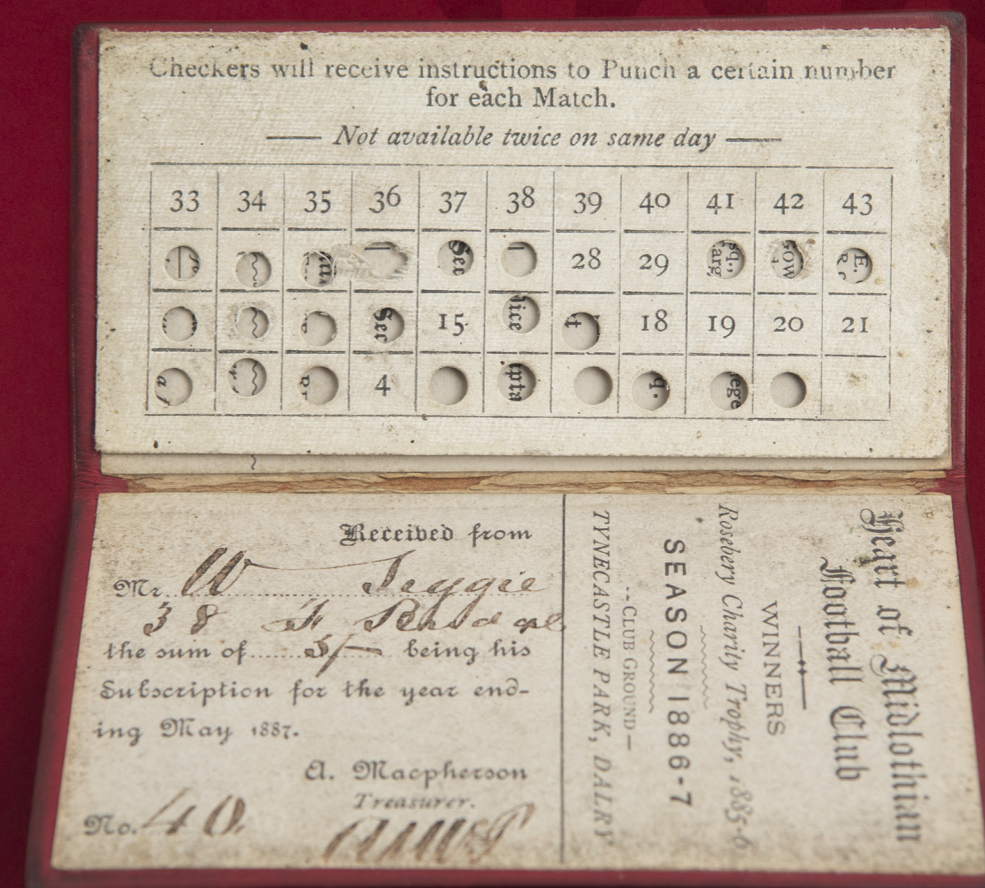 Checkers will receive instructions to Punch a certain number
for each Match.
Not available twice on same day
33 34 35 36 37 38 39 40 41 42 43
28 29
15 18 19 20 21
4
Received from
Mr. W Seggie
38 F Bridge
the sum of 5/- being his
Subscription for the year end-
ing May 1887.
A. Macpherson
Treasurer.
No. 40.
Heart of Midlothian
Football Club
WINNERS
Rosebery Charity Trophy, 1885-6
SEASON 1886-7
--CLUB GROUND--
TYNECASTLE PARK, DALRY